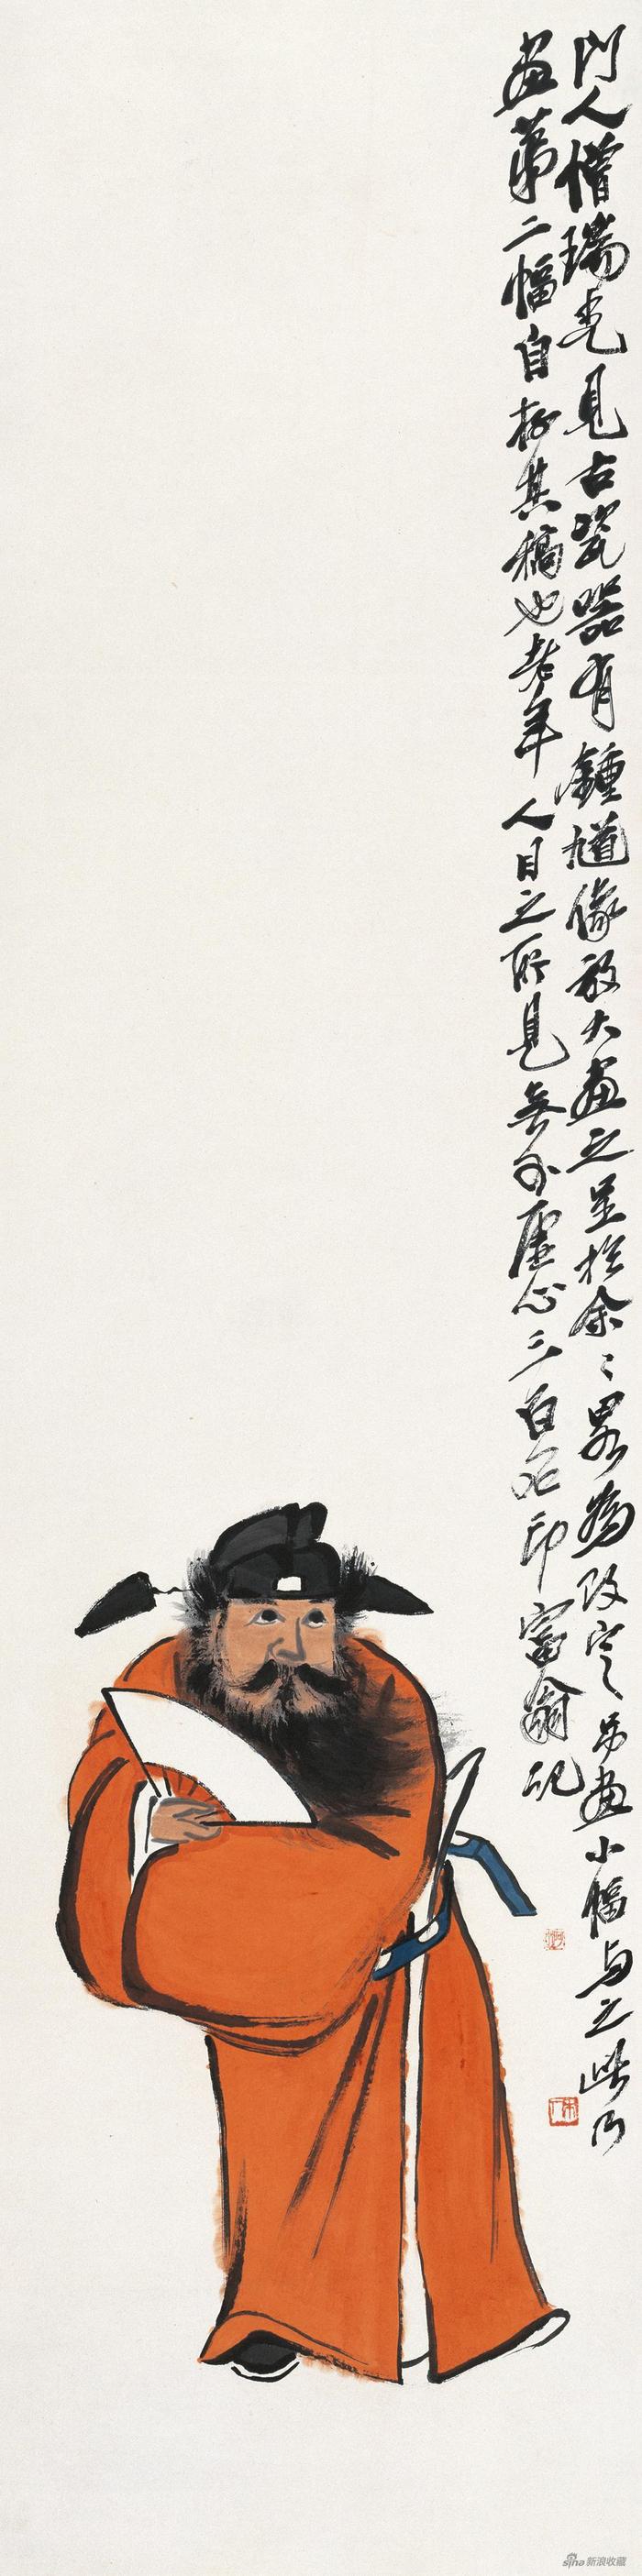 門人僧瑞光見古瓷器有鍾馗像放大畫之呈於余〻畧為改定另畫小幅与之此乃
畫第二幅自存其稿也老年人目之所見無不虛心三百石印富翁記
木人
sina 新浪收藏